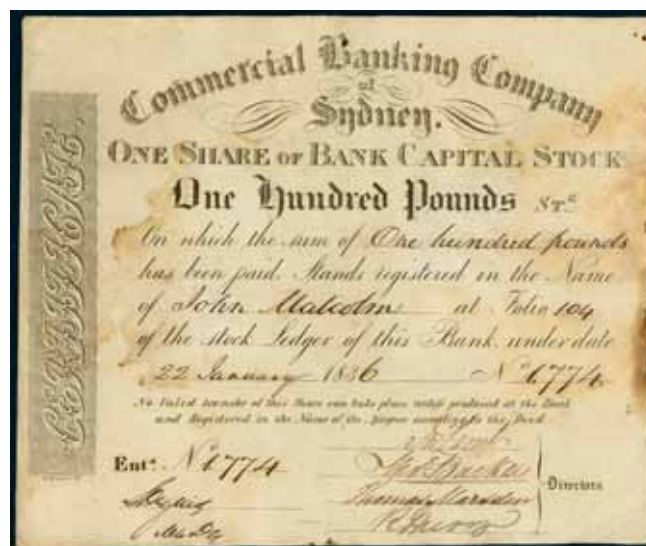 Commercial Banking Company
of
Sydney.
ONE SHARE OF BANK CAPITAL STOCK
One Hundred Pounds STG
On which the sum of One hundred pounds
has been paid. Stands registered in the Name
of John Malcolm at Folio 104
of the stock Ledger of this Bank under date
22 January 1836 No 1774
No Valid transfer of this Share can take place until produced at the Bank
and Registered in the Name of the
Entd. No 1774
Thomas Marsden
Directors